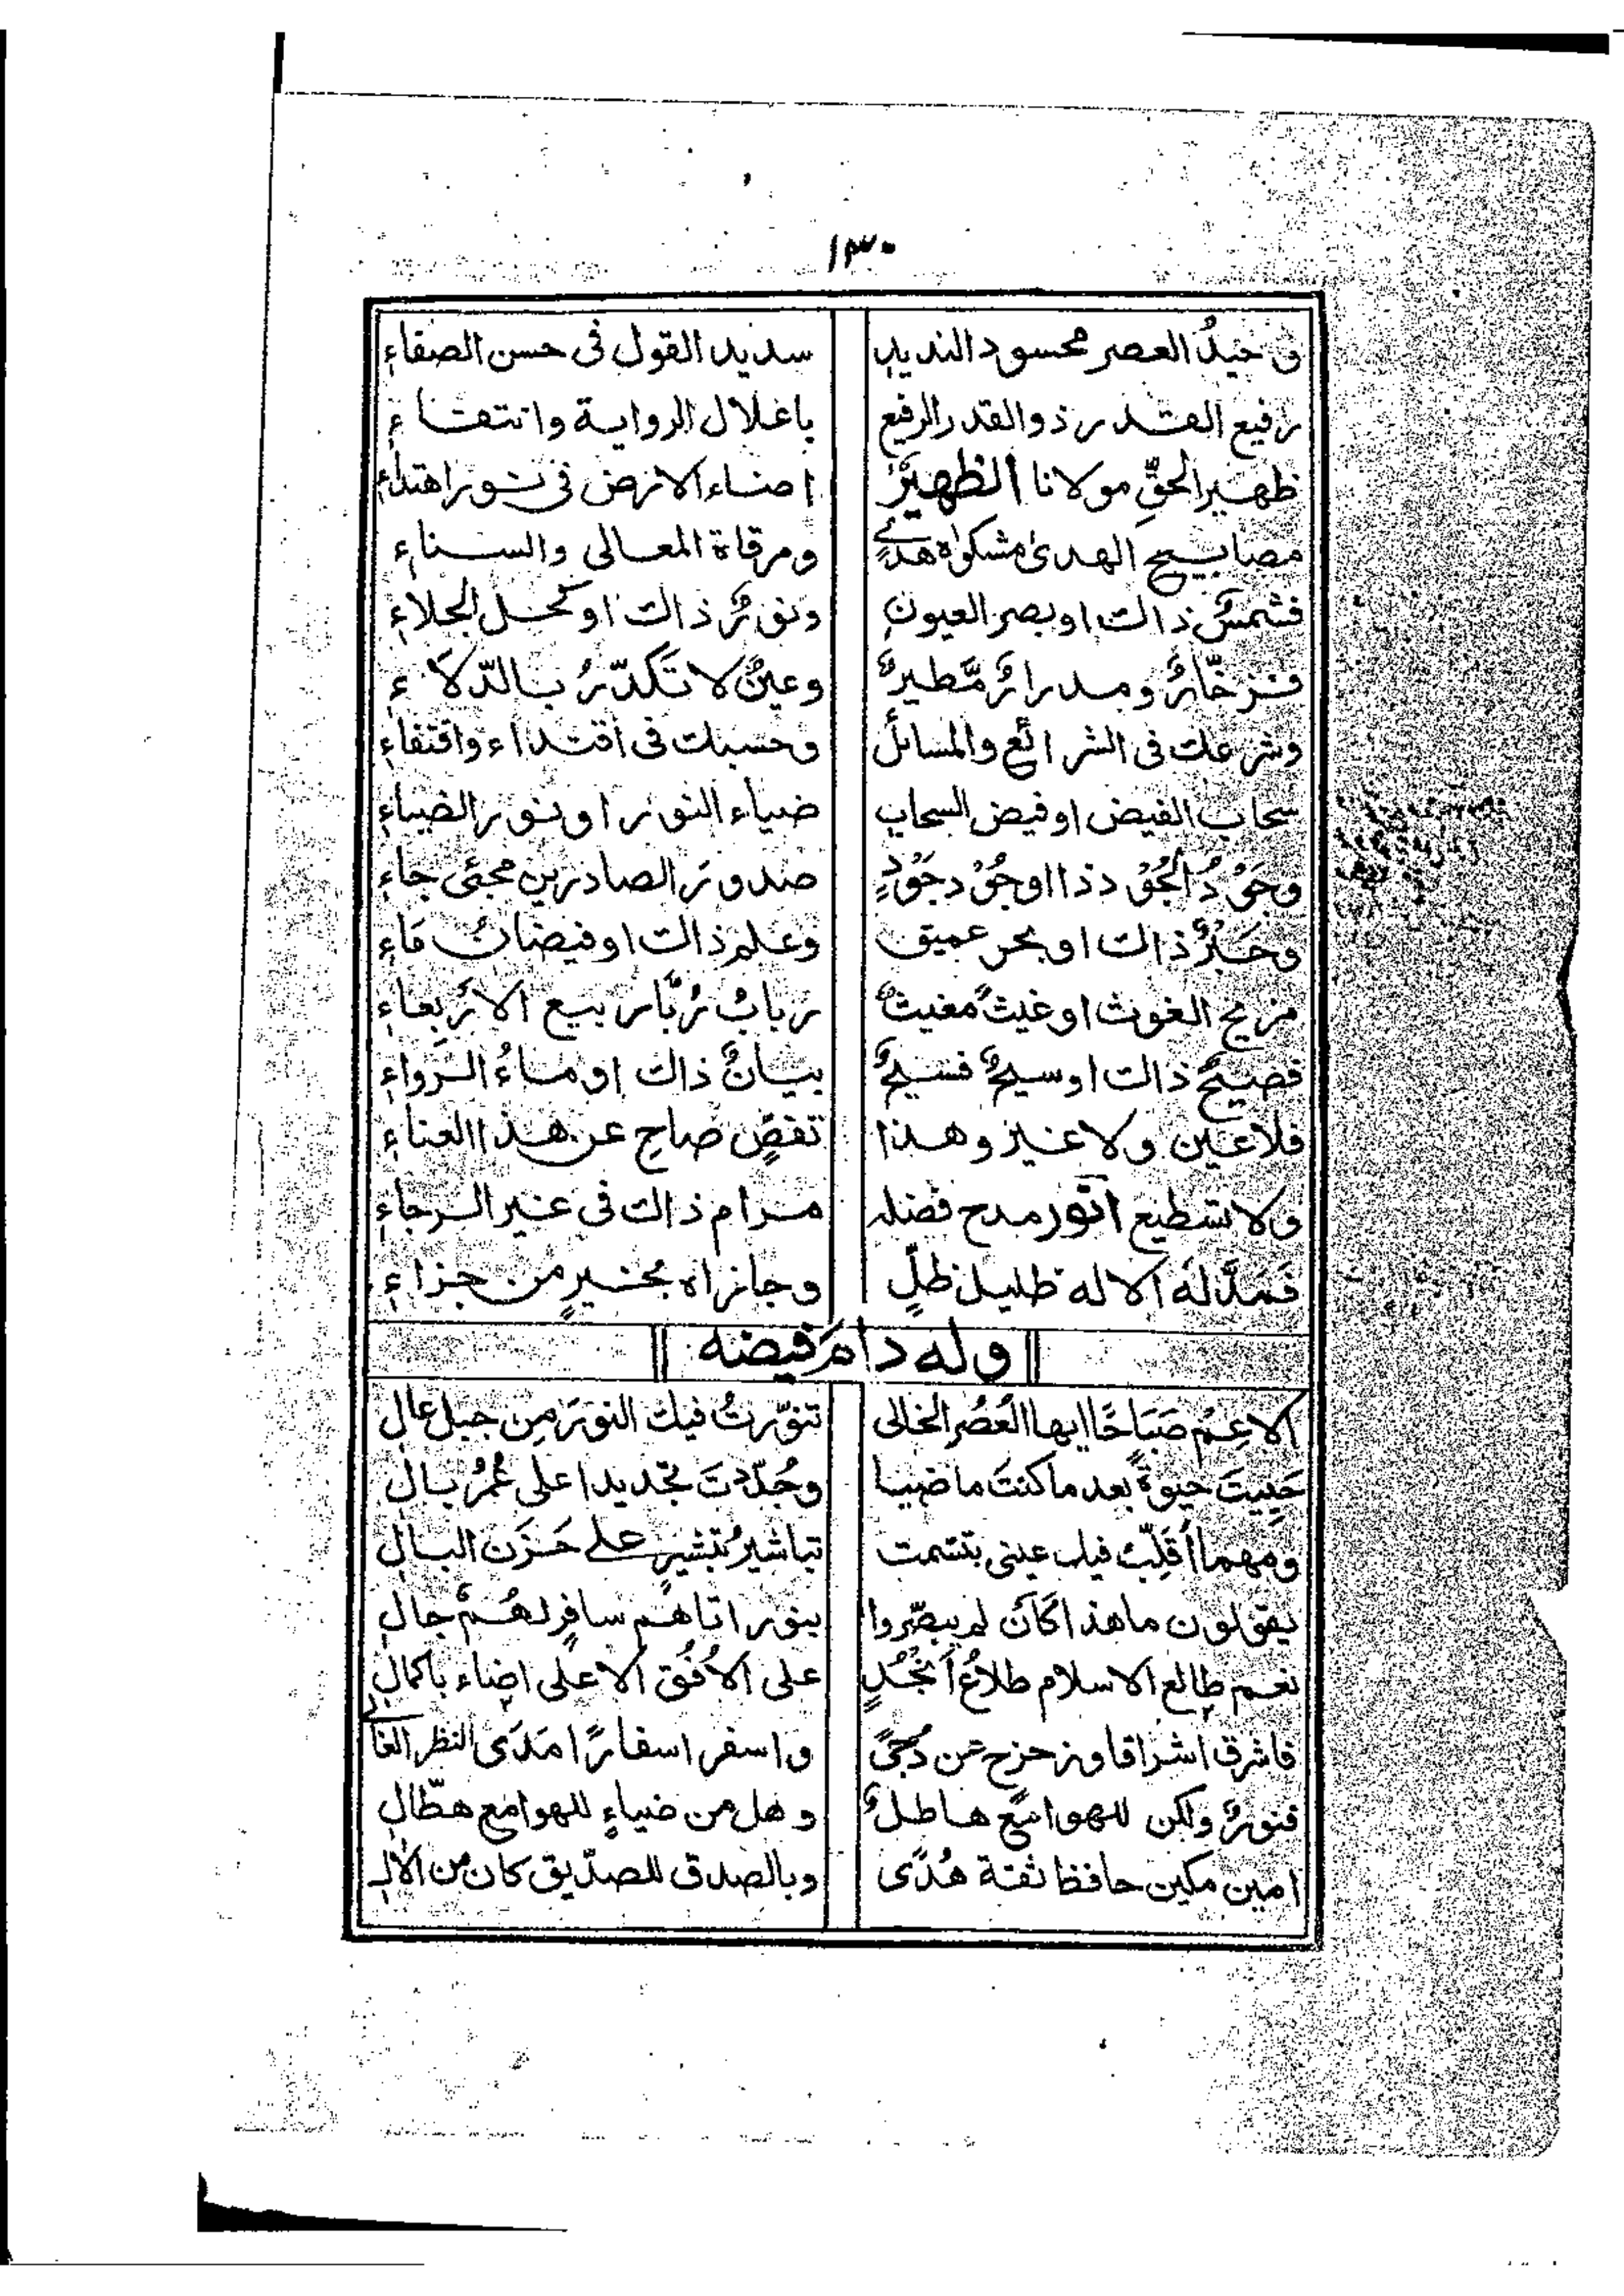 ١٣٠
وحيدُ العصر محسود النديد سديد القول فى حسن الصفاءِ
رفيع القدر ذو القدر الرفيع باعلال الرواية وانتقاءِ
ظهير الحقِّ مولانا الظهيرُ اضاء الارض فى نور اهتداءِ
مصابيح الهدىٰ مشكوٰة هدىٍ ومرقاة المعالى والسناءِ
فشمسٌ ذاك او بصر العيونِ ونورٌ ذاك او كحل الجلاءِ
فزخّارٌ ومدرارٌ مَّطيرٌ وعينٌ لا تَكدّرُ بالدّلاءِ
وشرعك فى الشرائع والمسائل وحسبك فى اقتداء واقتفاءِ
سحاب الفيض او فيض السحابِ ضياء النور او نور الضياءِ
وجَوْدُ الجُوْد ذا او جُوْد جَوْدٍ صدور الصادرين مجئ جاءِ
وحَبْرٌ ذاك او بحر عميق وعلم ذاك او فيضان ماءِ
مريح الغوث او غيثٌ مغيثٌ ربابُ رُبَّا ربيع الارْبعاءِ
فصيحٌ ذاك او سيحٌ فسيحٌ بيانٌ ذاك او ماءُ الرّواءِ
فلا عين ولا غير وهذا تفصٍّ صاحِ عن هذا العناءِ
ولا تسطيع انور مدح فضله مرام ذاك فى غير الرجاءِ
فمدَّ لَه الاله ظليل ظلٍّ وجازاه بخيرٍ من جزاءِ
وله دام فيضه
الا عِمْ صَبَاحًا ايها العُصُر الخالى تنوّرتُ فيك النورَ من جبل عالِ
حَيِيتَ حيوةً بعد ما كنتَ ماضيا وجُدّدتَ تجديدا على عُمُرٍ بالِ
ومهما اُقَلِّبْ فيك عينى بتسّمت تباشيرُ تبشيرٍ على حَزَن البالِ
يقولون ما هذا كَاَن لم يبصّروا بنور اتاهم سافرٍ لهُم جالِ
نعم طالع الاسلام طلاعُ اَنجُدٍ على الاُفُق الاعلى اضاء باكمالِ
فاشرق اشراقا وزحزح عن دُجىً واسفر اسفارًا مَدَى النظر الغالى
فنورٌ ولكن للهوامع هاطلٌ وهل من ضياءٍ للهوامع هطّالِ
امين مكين حافظ ثقة هُدًى وبالصدق للصدّيق كان من الاٰل